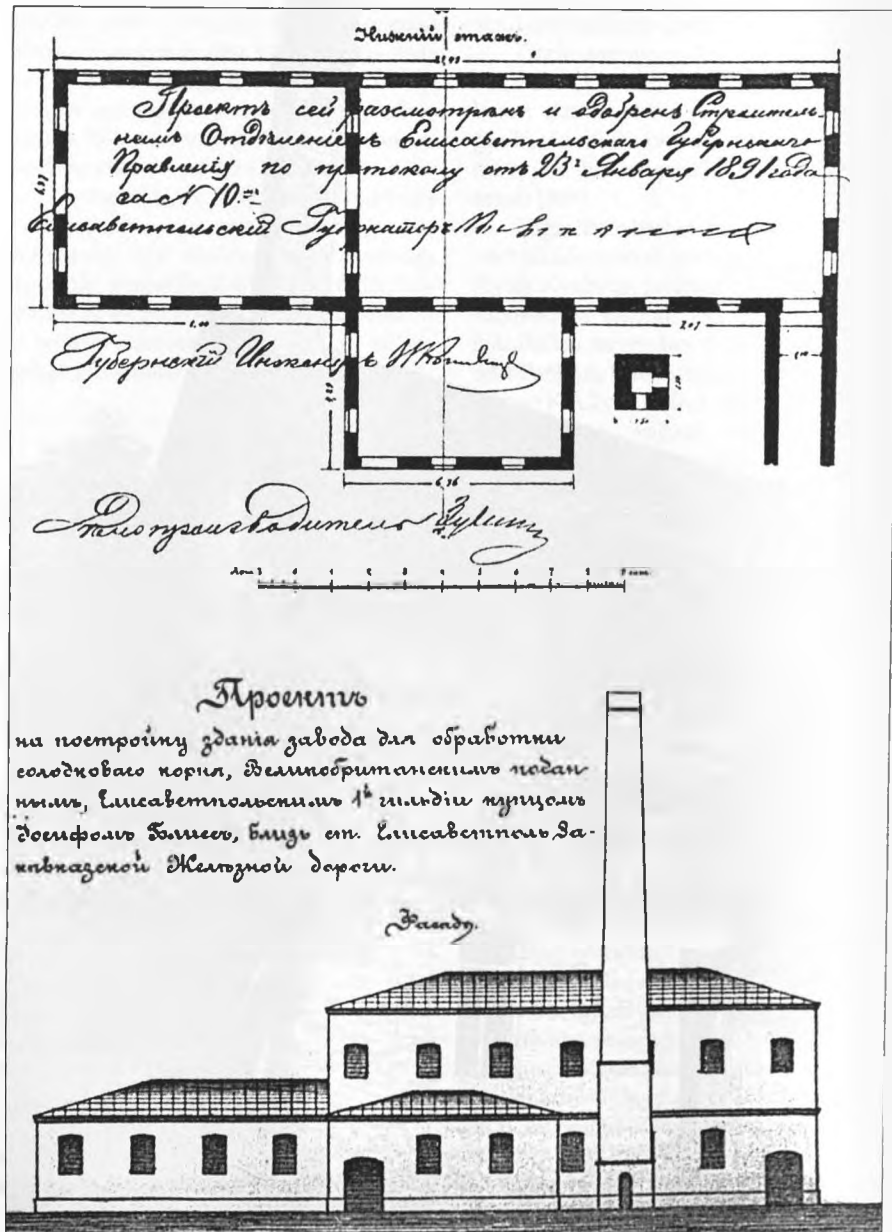 Нижній этажъ.
Проектъ сей разсмотрѣнъ и одобренъ Строитель-
нымъ Отдѣленіемъ Елисаветпольскаго Губернскаго
Правленія по протоколу отъ 23го Января 1891 года
за N 10.мъ
Елисаветпольскій Губернаторъ
6,00
2,07
Губернскій Инженеръ
6,76
Дѣлопроизводитель
1 2 3 4 5 6 7 8
Проектъ
на постройку зданія завода для обработки
солодковаго корня, Великобританскимъ подан-
нымъ, Елисаветпольскимъ 1й гильдіи купцомъ
Іосифомъ Блиссъ, близь ст. Елисаветполь За-
кавказской Желѣзной дороги.
Фасадъ.